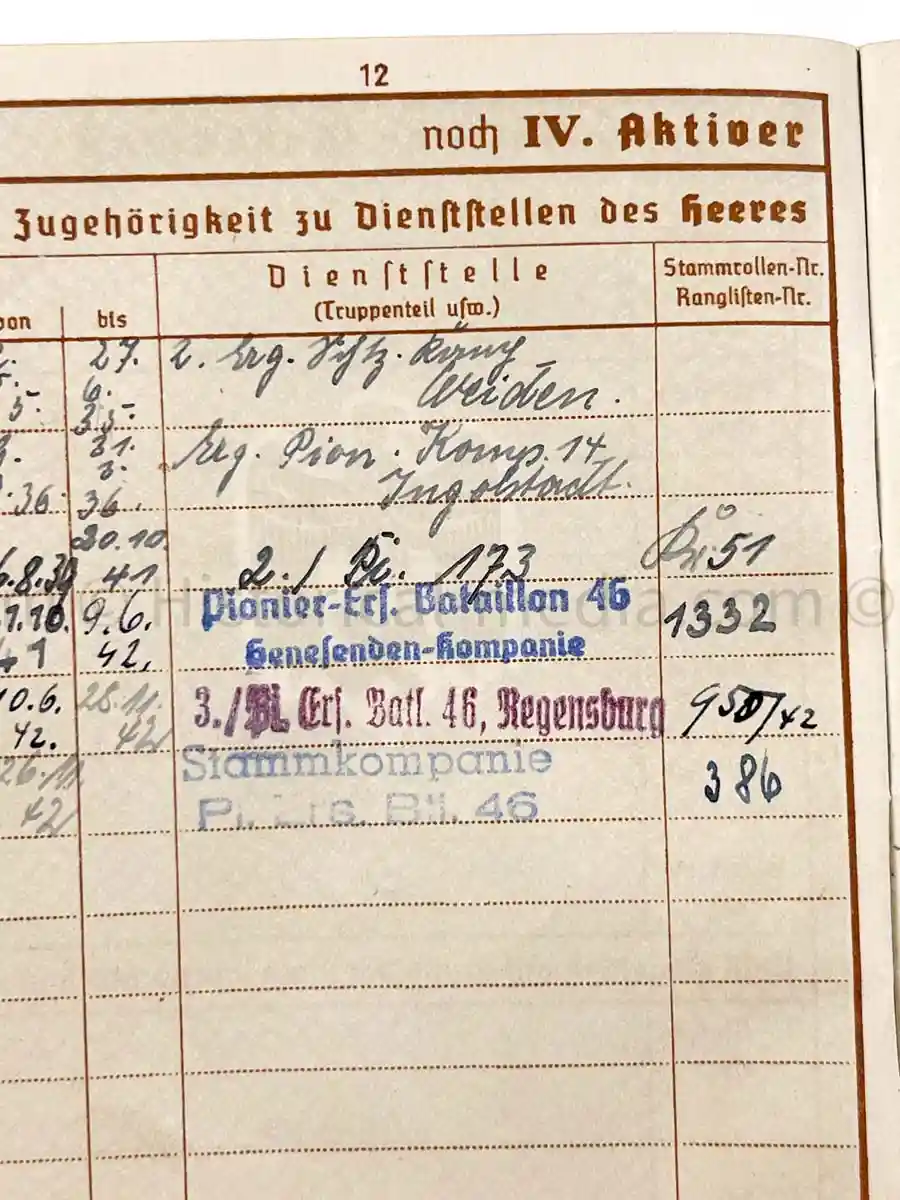 12
noch IV. Aktiver
Zugehörigkeit zu Dienststellen des Heeres
von bis
Dienststelle
(Truppenteil usw.)
Stammrollen-Nr.
Ranglisten-Nr.
27. 2. Erg. Schtz.
6. Weiden.
5. 35.
31. Erg. Pion. Komp. 14
3. Ingolstadt.
.36. 36.
20.10.
.8.39 41 2./ Pi. 173 51
1.10. 9.6. Pionier-Ers. Bataillon 46 1332
41 42. Genesenden-Kompanie
10.6. 28.11. 3./Pi. Ers. Batl. 46, Regensburg 950/42
42. 42
26.11. Stammkompanie 386
42 Pi. Ers. Btl. 46
© Historicalmedia.com ©